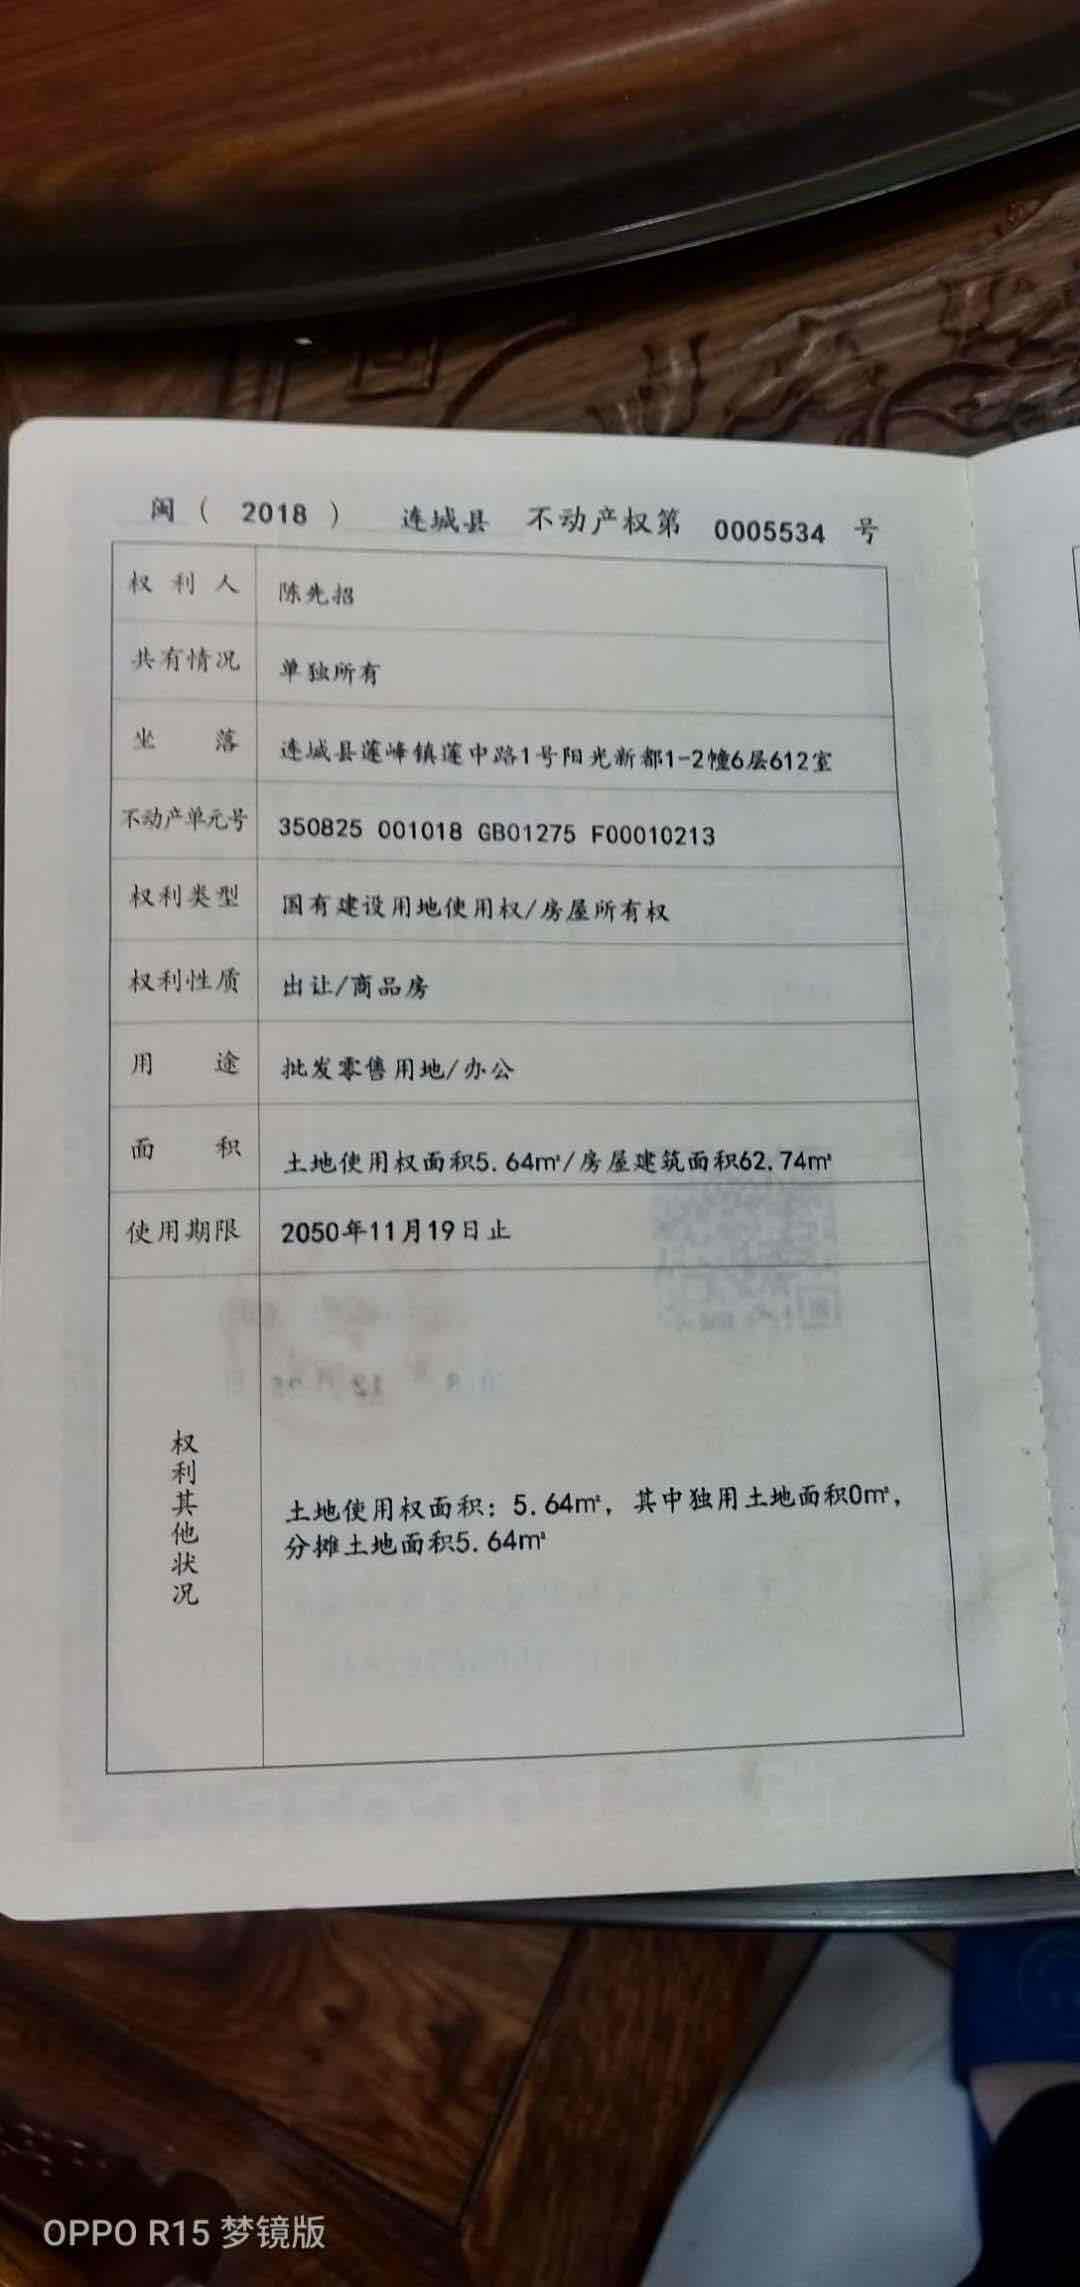 闽（ 2018 ） 连城县 不动产权第 0005534 号
权利人 陈先招
共有情况 单独所有
坐落 连城县莲峰镇莲中路1号阳光新都1-2幢6层612室
不动产单元号 350825 001018 GB01275 F00010213
权利类型 国有建设用地使用权/房屋所有权
权利性质 出让/商品房
用途 批发零售用地/办公
面积 土地使用权面积5.64㎡/房屋建筑面积62.74㎡
使用期限 2050年11月19日止
权利其他状况
土地使用权面积：5.64㎡，其中独用土地面积0㎡，
分摊土地面积5.64㎡
OPPO R15 梦镜版